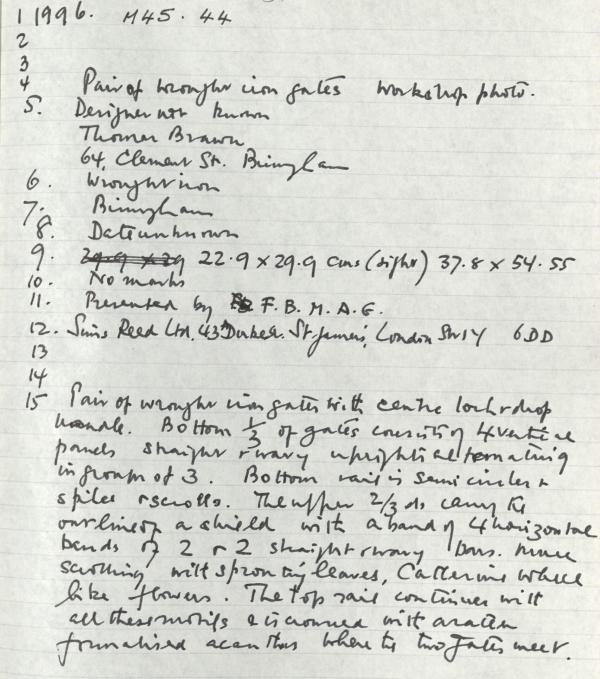 1 1996. M45. 44
2
3
4 Pair of wrought iron gates workshop photo.
5. Designer not known
Thomas Brawn
64, Clement St. Birmingham
6. Wrought iron
7. Birmingham
8. Date unknown
9. 29.9 x 29 22.9 x 29.9 cms (sight) 37.8 x 54.55
10. No marks
11. Presented by F.B.M.A.G.
12. Sims Reed Ltd, 43A Duke St. St James', London SW1Y 6DD
13
14
15 Pair of wrought iron gates with centre lock & drop
handle. Bottom 1/3 of gates consists of 4 vertical
panels straight & wavy uprights alternating
in groups of 3. Bottom rail is semi circles &
spikes & scrolls. The upper 2/3 ds carry the
outline of a shield with a band of 4 horizontal
bands of 2 & 2 straight & wavy bars.
scrolling with sprouting leaves, Catherine wheel
like flowers. The top rail continues with
all these motifs & is crowned with
formalised acanthus where the two gates meet.